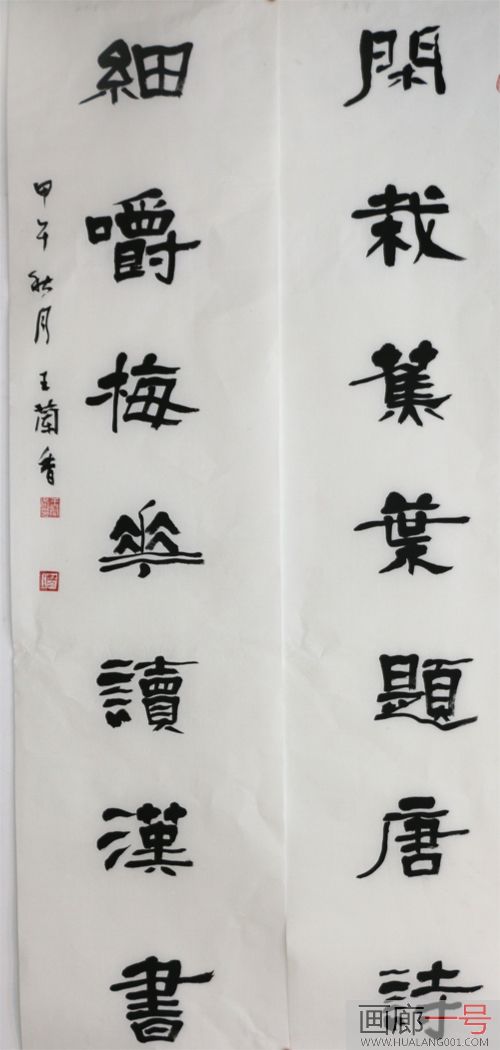 閑栽蕉葉題唐詩
細嚼梅華讀漢書
甲午秋月王蘭香
画廊一号
WWW.HUALANG001.COM